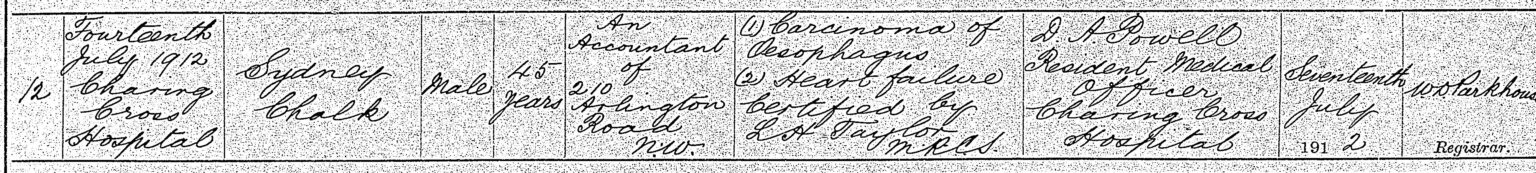 12
Fourteenth
July 1912
Charing
Cross
Hospital
Sydney
Chalk
Male
45
years
An
Accountant
of
210
Arlington
Road
N.W.
(1) Carcinoma of
Oesophagus
(2) Heart failure
Certified by
L H Taylor
M.R.C.S.
D. A. Powell
Resident Medical
Officer
Charing Cross
Hospital
Seventeenth
July
1912
Parkhouse
Registrar.